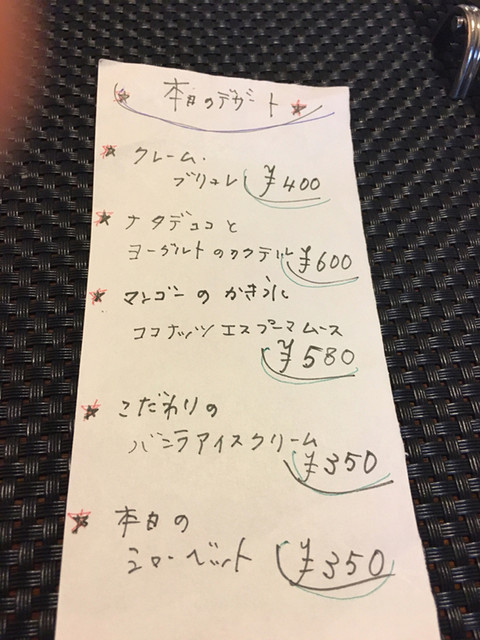 本日のデザート
クレーム・
ブリュレ ¥400
ナタデココと
ヨーグルトのカクテル ¥600
マンゴーのかき氷
ココナッツエスプーマムース
¥580
こだわりの
バニラアイスクリーム
¥350
本日の
シャーベット ¥350